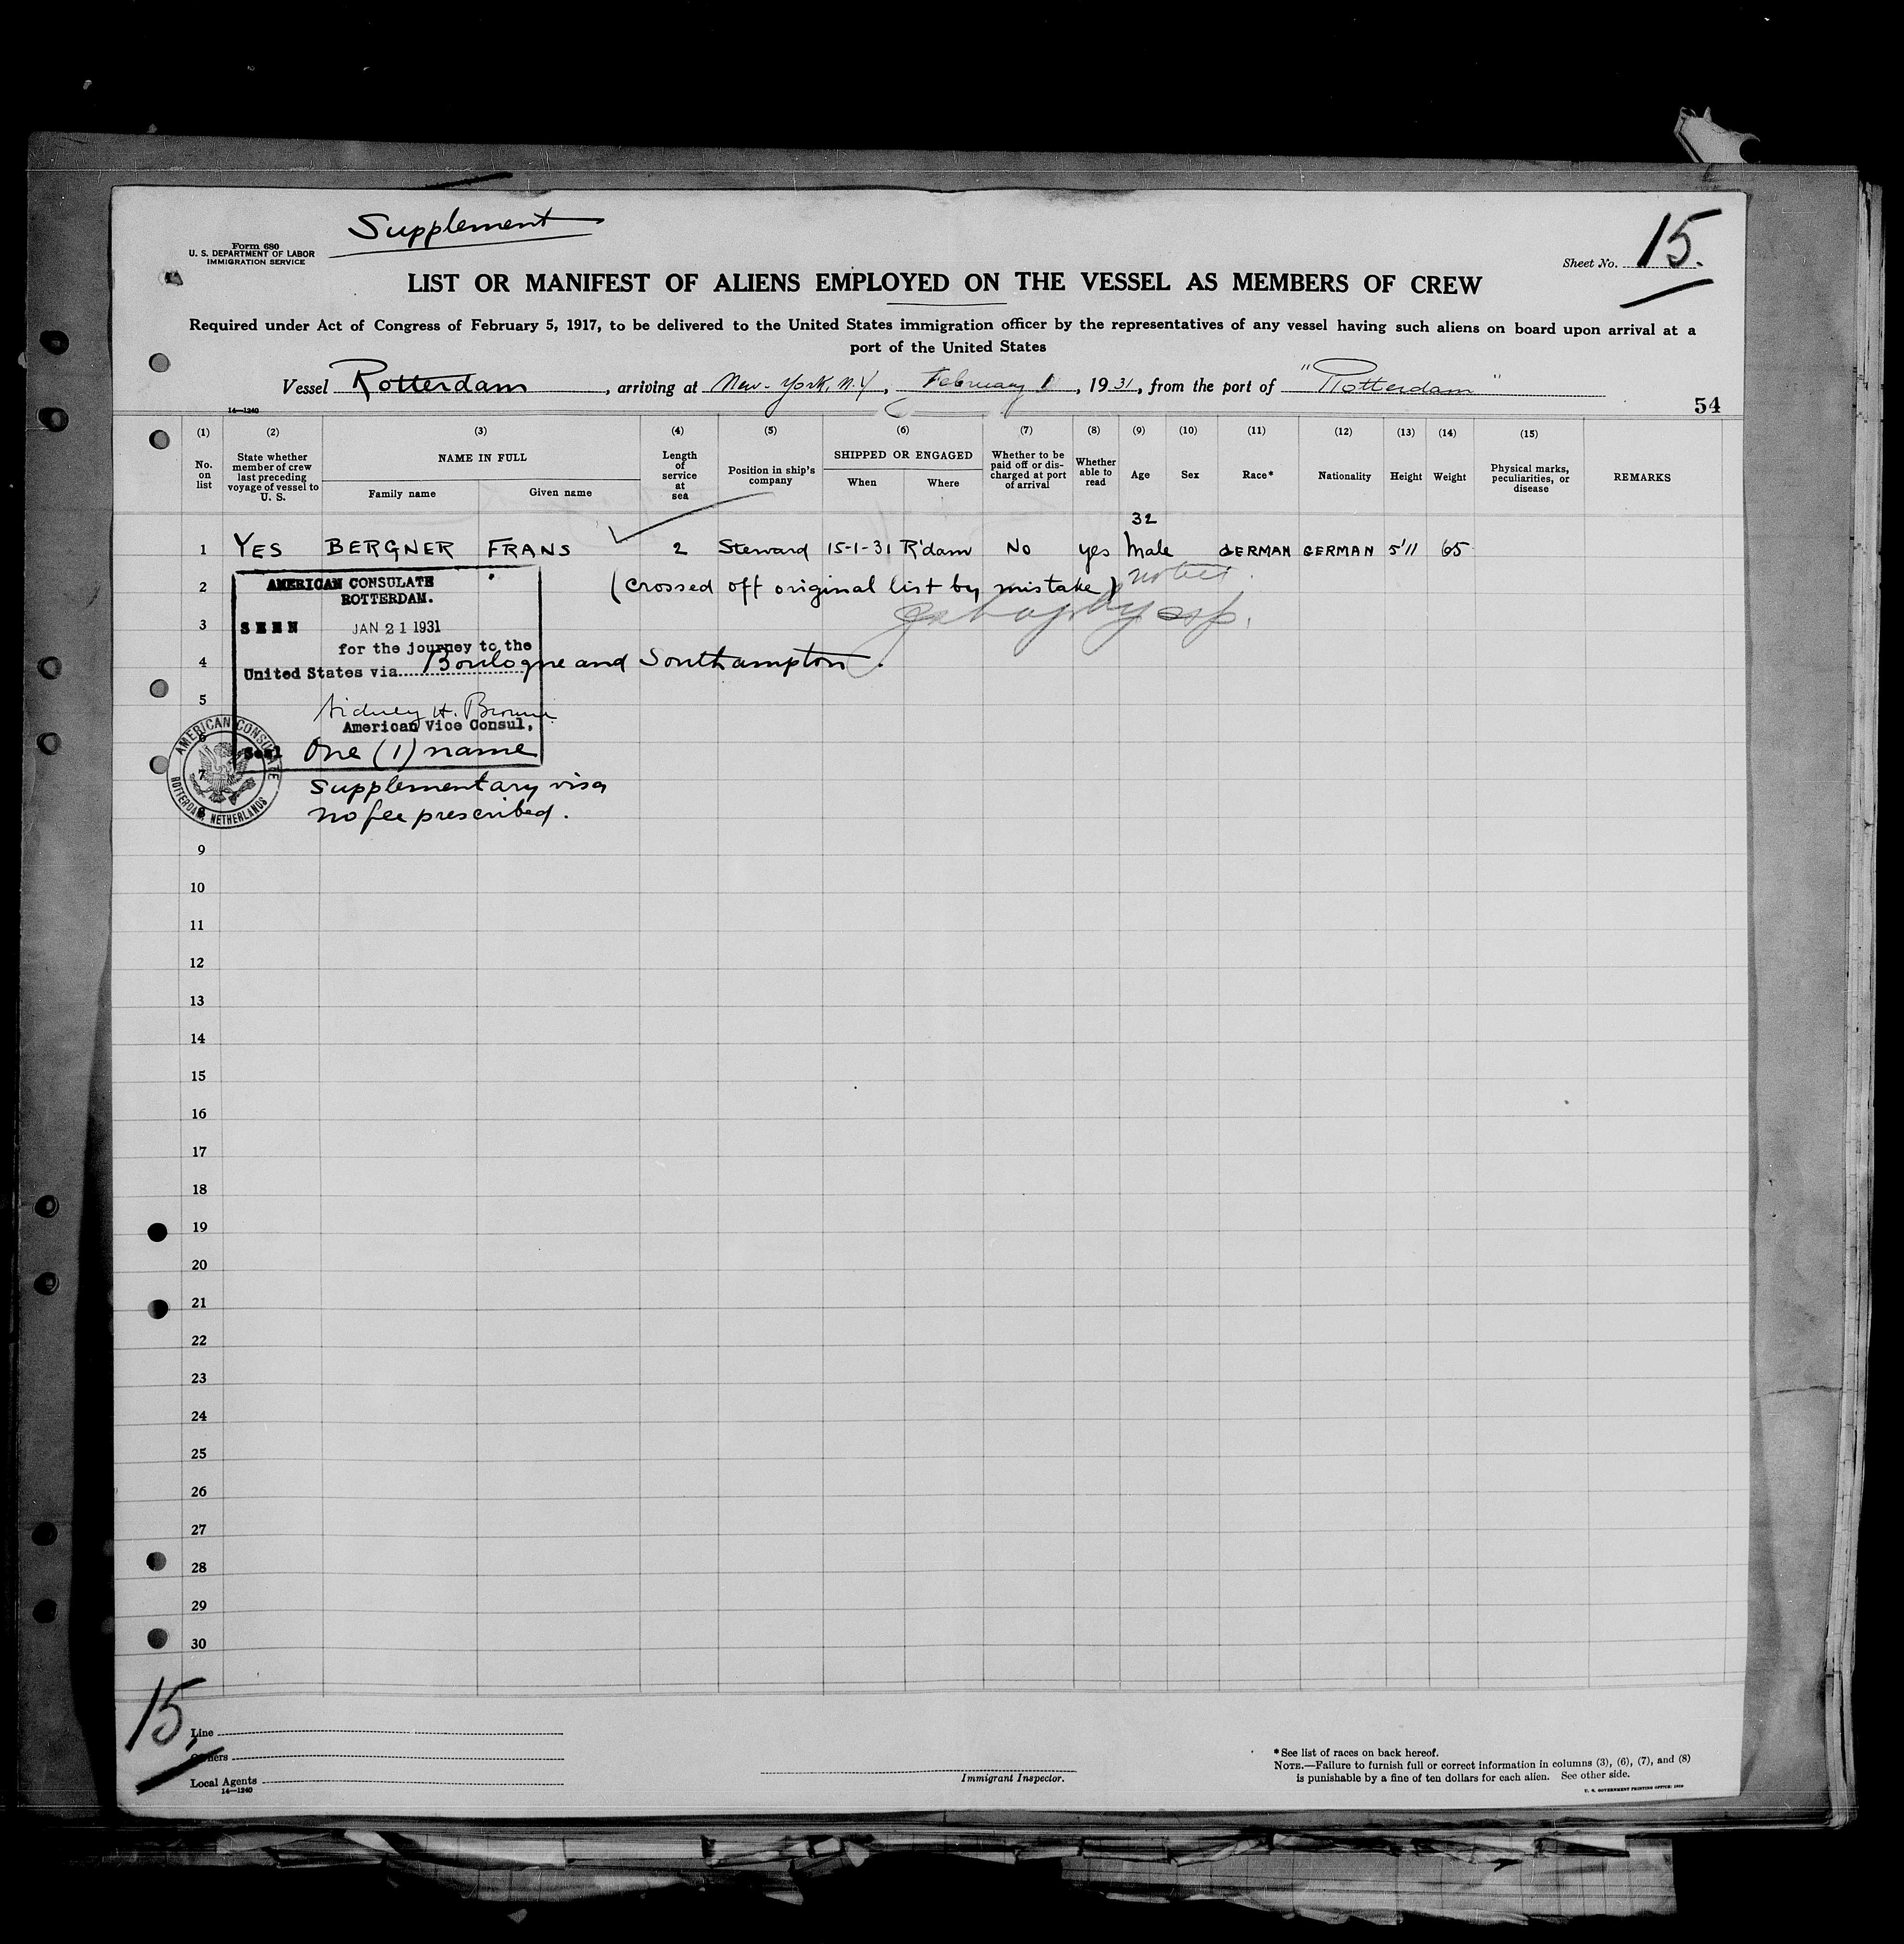 Supplement
Form 680
U. S. DEPARTMENT OF LABOR
IMMIGRATION SERVICE
Sheet No. 15.
LIST OR MANIFEST OF ALIENS EMPLOYED ON THE VESSEL AS MEMBERS OF CREW
Required under Act of Congress of February 5, 1917, to be delivered to the United States immigration officer by the representatives of any vessel having such aliens on board upon arrival at a
port of the United States
Vessel Rotterdam, arriving at New-York, N.Y, February 1, 1931, from the port of "Rotterdam"
14—1240
54
(1) (2) (3) (4) (5) (6) (7) (8) (9) (10) (11) (12) (13) (14) (15)
No. on list
State whether member of crew last preceding voyage of vessel to U. S.
NAME IN FULL
Family name Given name
Length of service at sea
Position in ship's company
SHIPPED OR ENGAGED
When Where
Whether to be paid off or discharged at port of arrival
Whether able to read
Age Sex Race* Nationality Height Weight
Physical marks, peculiarities, or disease
REMARKS
32
1 YES BERGNER FRANS 2 Steward 15-1-31 R'dam No yes Male GERMAN GERMAN 5'11 65
AMERICAN CONSULATE
2 (crossed off original list by mistake)
ROTTERDAM.
3 SEEN JAN 21 1931
for the journey to the
4 United States via Boulogne and Southampton.
5 Sidney H. Browne
American Vice Consul,
6 Seal One (1) name
7 Supplementary visa
8 no fee prescribed.
AMERICAN CONSULATE
ROTTERDAM, NETHERLANDS
9
10
11
12
13
14
15
16
17
18
19
20
21
22
23
24
25
26
27
28
29
30
15.
Line
Owners
Local Agents
14—1240
Immigrant Inspector.
*See list of races on back hereof.
NOTE.—Failure to furnish full or correct information in columns (3), (6), (7), and (8)
is punishable by a fine of ten dollars for each alien. See other side.